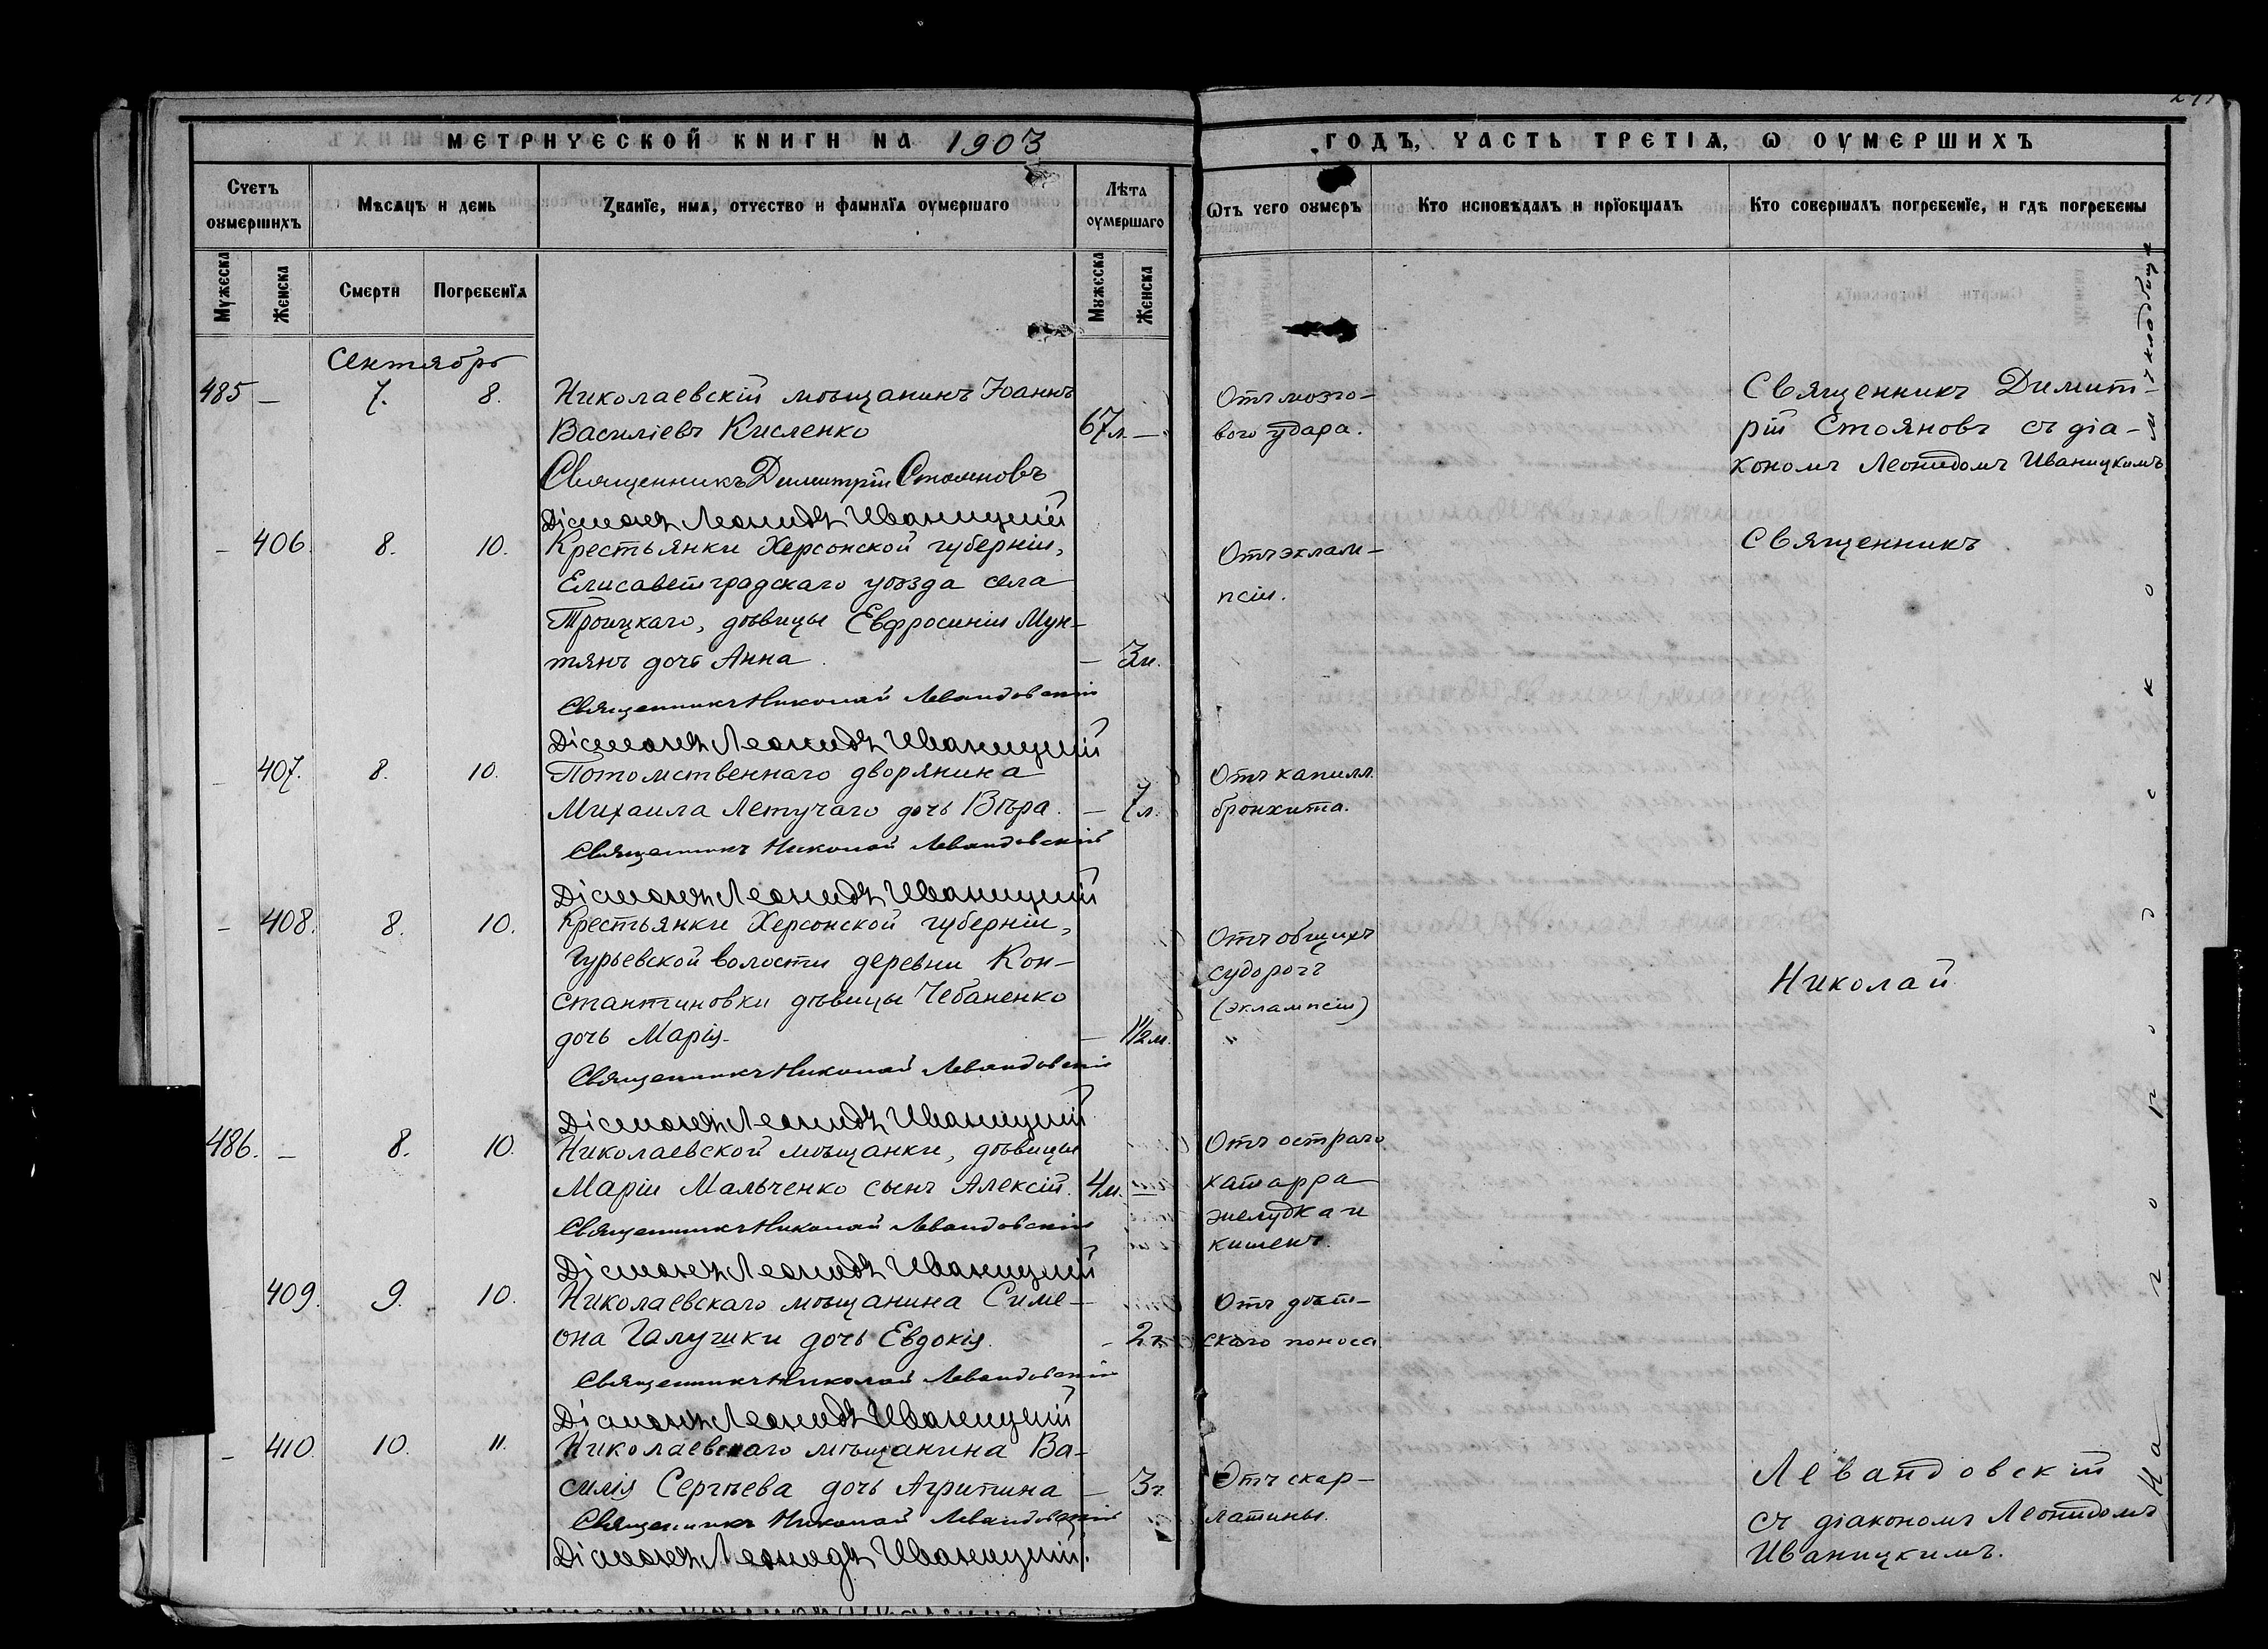 МЕТРИЧЕСКОЙ КНИГИ НА 1903
ГОДЪ, ЧАСТЬ ТРЕТІѦ, Ѡ ОУМЕРШИХЪ
Счетъ оумершихъ
Мѣсяцъ и день
Званїе, имѧ, отчество и фамилїѧ оумершаго
Лѣта оумершаго
Ѿтъ чего оумеръ
Кто исповѣдалъ и прїобщалъ
Кто совершалъ погребенїе, и гдѣ погребены
Мужеска
Женска
Смерти
Погребенїѧ
Мужеска
Женска
Сентябрь
485 — 7. 8. Николаевскій мѣщанинъ Іоаннъ
Василіевъ Кисленко 67 л. —
Отъ мозго-
вого удара.
Священникъ Димит-
рій Стояновъ съ діа-
кономъ Леонидомъ Иваницкимъ
Священникъ Димитрій Стояновъ
Діаконъ Леонидъ Иваницкій
— 406. 8. 10. Крестьянки Херсонской губерніи,
Елисаветградскаго уѣзда села
Троицкаго, дѣвицы Евфросиніи Мун-
тянъ дочь Анна. —
Отъ эклам-
псіи.
Священникъ
Священникъ Николай Левандовскій
Діаконъ Леонидъ Иваницкій
— 407. 8. 10. Потомственнаго дворянина
Михаила Летучаго дочь Вѣра. — 7 л.
Отъ капилл.
бронхита.
Священникъ Николай Левандовскій
Діаконъ Леонидъ Иваницкій
— 408. 8. 10. Крестьянки Херсонской губерніи,
Гурьевской волости деревни Кон-
стантиновки дѣвицы Чебаненко
дочь Марія. — 1½ м.
Отъ общихъ
судорогъ
(эклампсіи)
Николай
Священникъ Николай Левандовскій
Діаконъ Леонидъ Иваницкій
486. — 8. 10. Николаевской мѣщанки, дѣвицы
Маріи Мальченко сынъ Алексій. 4 м. —
Отъ остраго
катарра
желудка и
кишекъ.
Священникъ Николай Левандовскій
Діаконъ Леонидъ Иваницкій
409. 9. 10. Николаевскаго мѣщанина Симе-
она Галушки дочь Евдокія. - 2 г.
Отъ дѣт-
скаго поноса
Священникъ Николай Левандовскій
Діаконъ Леонидъ Иваницкій
— 410. 10. 11. Николаевскаго мѣщанина Ва-
силія Сергѣева дочь Агриппина — 3 г.
Отъ скар-
латины.
Левандовскій
съ діакономъ Леонидомъ
Иваницкимъ.
Священникъ Николай Левандовскій
Діаконъ Леонидъ Иваницкій.
На городском кладбище